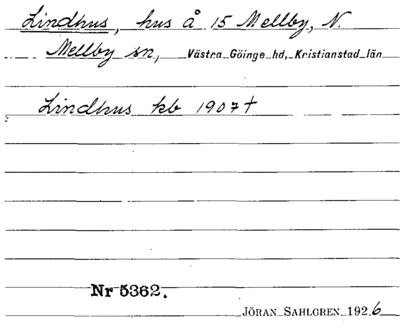 Lindhus, hus å 15 Mellby, N.
Mellby sn, Västra Göinge hd, Kristianstad län
Lindhus kb 1907+
Nr 5362.
JÖRAN SAHLGREN 1926